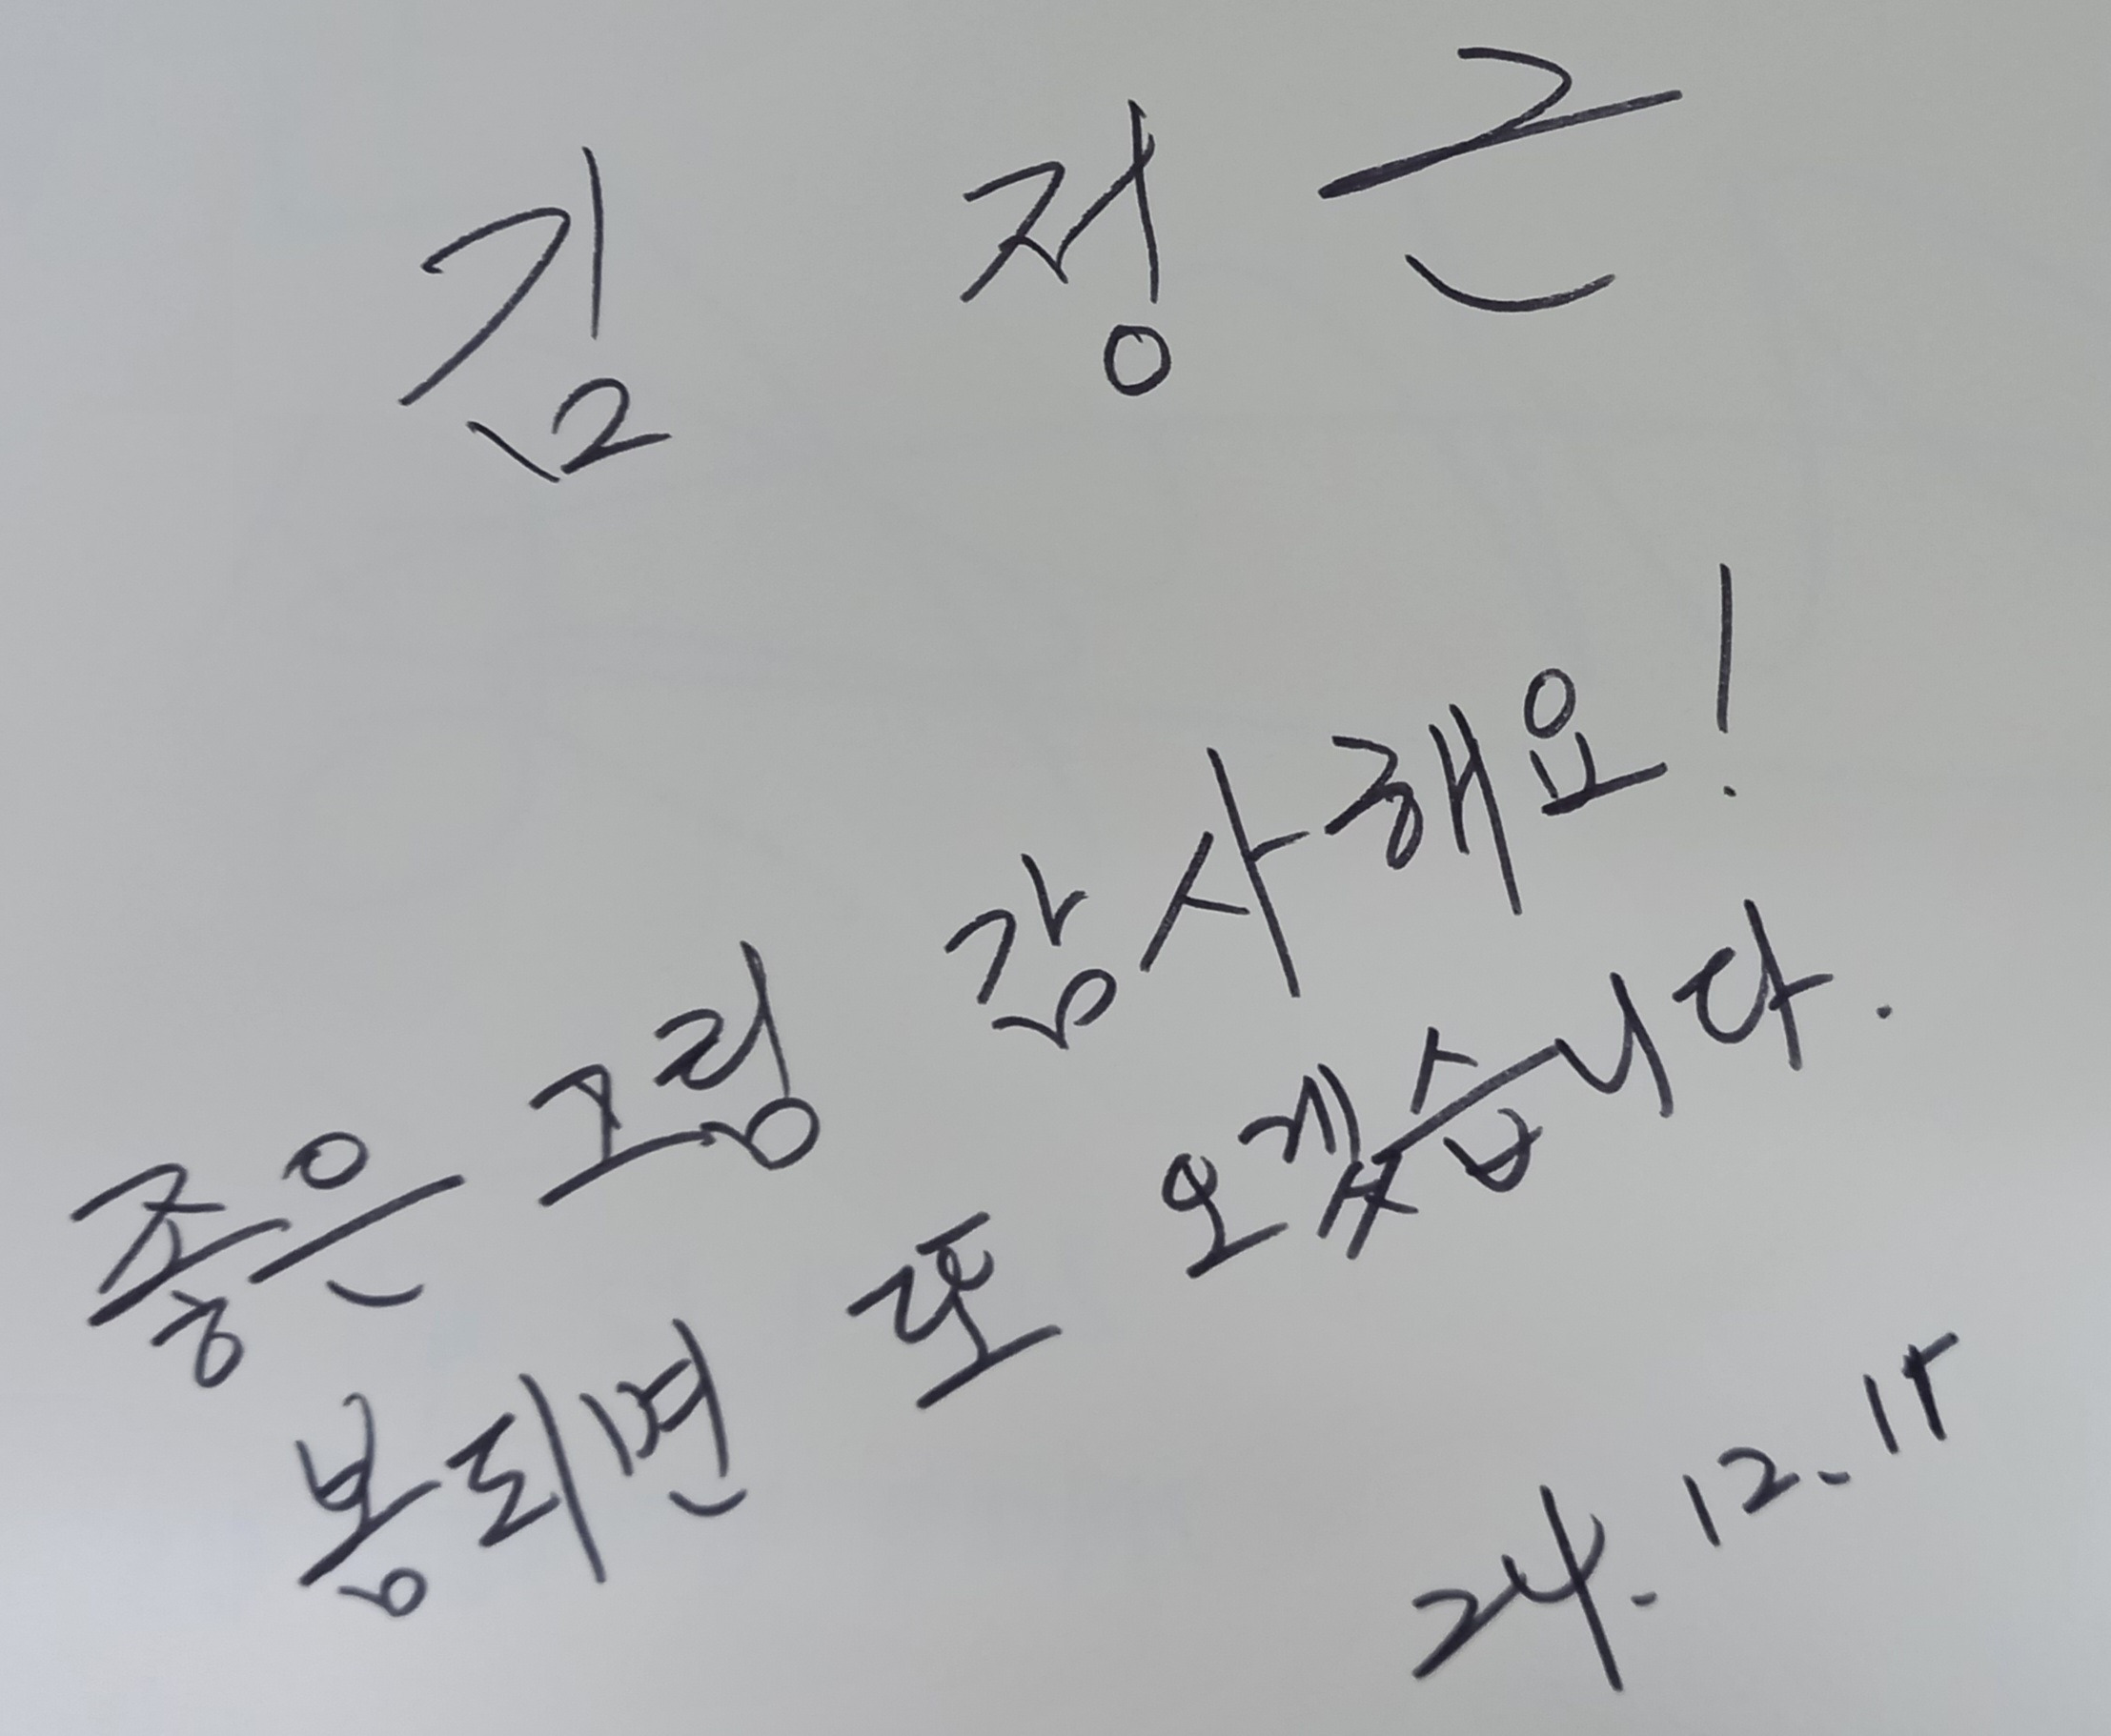 김 정 근
좋은 고령 감사해요!
봄되면 또 오겠습니다.
24.12.15